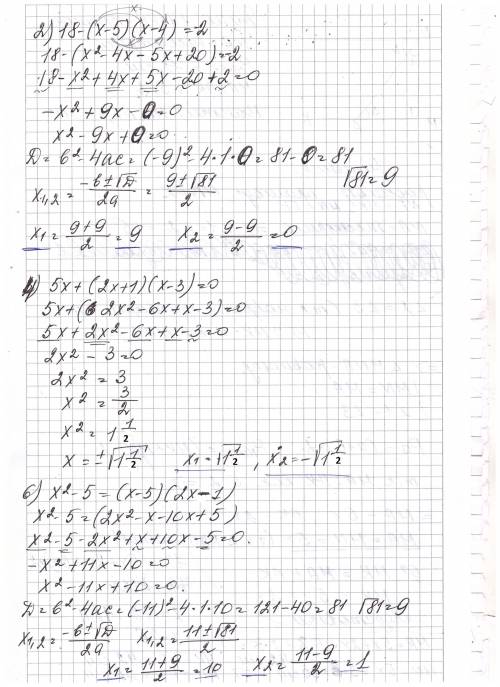 2) 18-(x-5)(x-4)=-2
18-(x²-4x-5x+20)=-2
18-x²+4x+5x-20+2=0
-x²+9x-0=0
x²-9x+0=0
D=b²-4ac=(-9)²-4·1·0=81-0=81
√81=9
x₁,₂=(-b±√D)/2a=(9±√81)/2
x₁=(9+9)/2=9 x₂=(9-9)/2=0
4) 5x+(2x+1)(x-3)=0
5x+(2x²-6x+x-3)=0
5x+2x²-6x+x-3=0
2x²-3=0
2x²=3
x²=3/2
x²=1 1/2
x=±√1 1/2 x₁=√1 1/2, x₂=-√1 1/2
6) x²-5=(x-5)(2x-1)
x²-5=(2x²-x-10x+5)
x²-5-2x²+x+10x-5=0.
-x²+11x-10=0
x²-11x+10=0.
D=b²-4ac=(-11)²-4·1·10=121-40=81 √81=9
x₁,₂=(-b±√D)/2a x₁,₂=(11±√81)/2
x₁=(11+9)/2=10 x₂=(11-9)/2=1